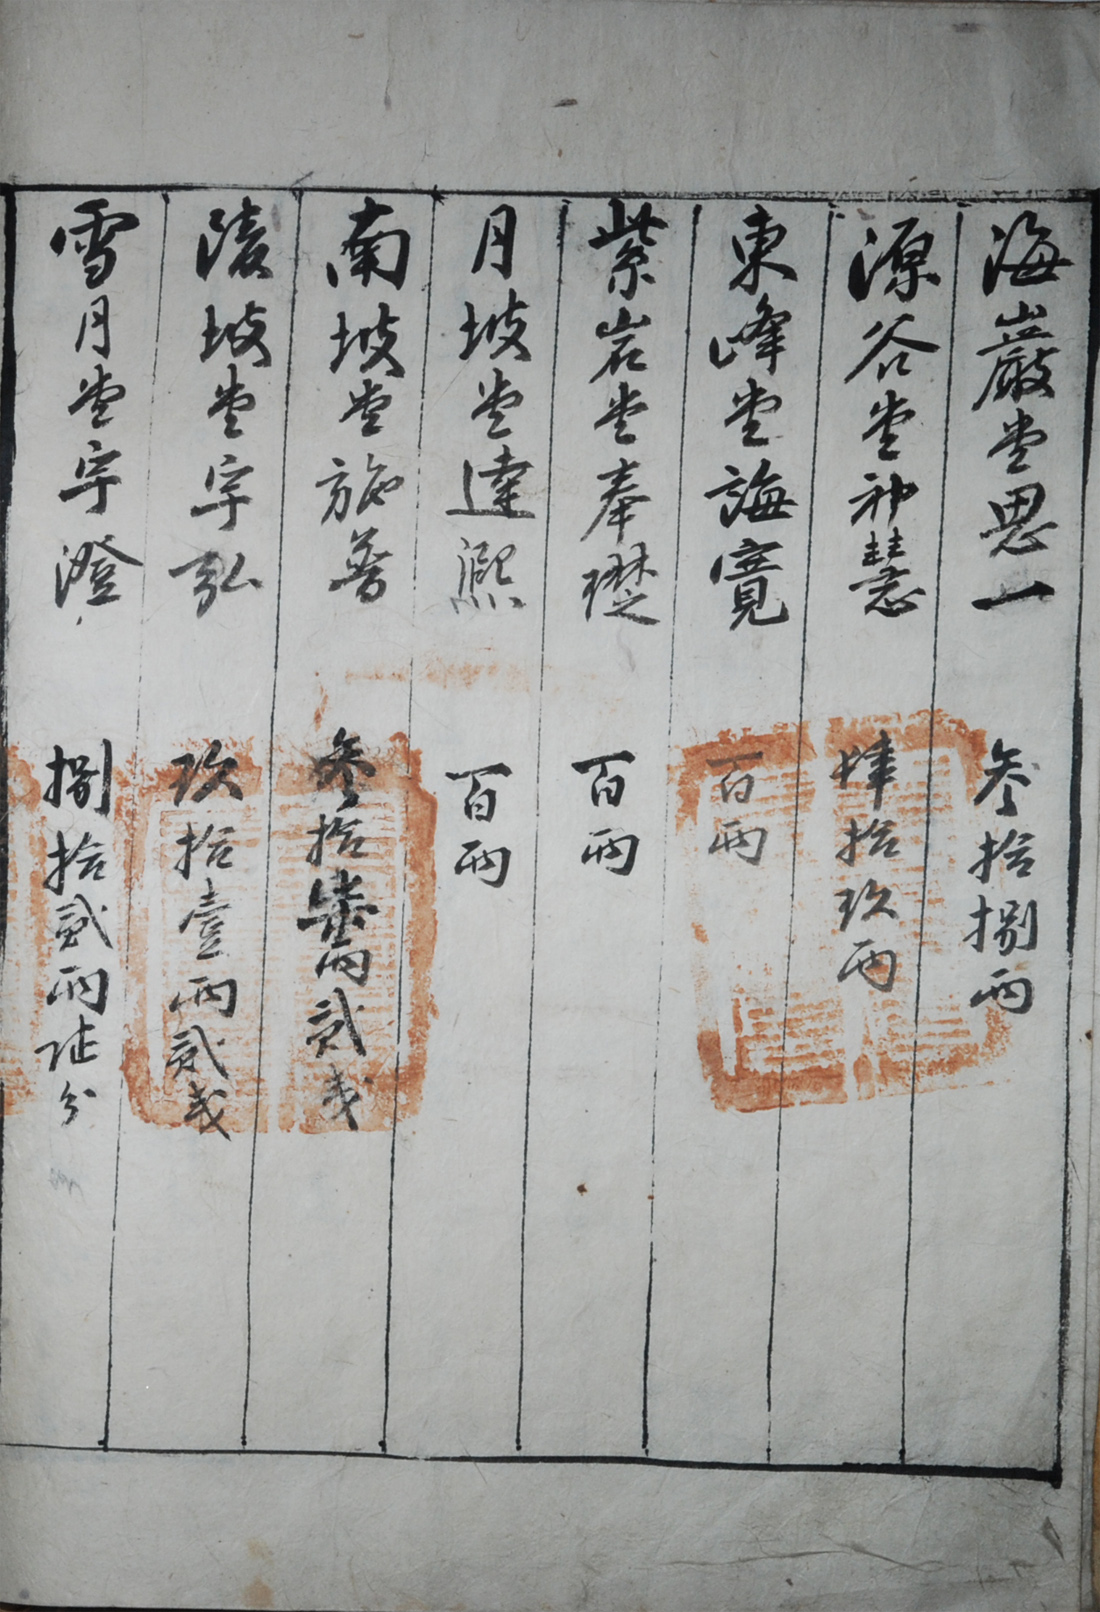 海巖堂思一 叅拾捌兩
源谷堂神慧 肆拾玖兩
東峰堂誨寬 百兩
紫岩堂奉礎 百兩
月坡堂達凞 百兩
南坡堂施普 叅拾柒兩貳戔
陵坡堂宇弘 玖拾壹兩貳戔
雪月堂宇澄 捌拾貳兩 分